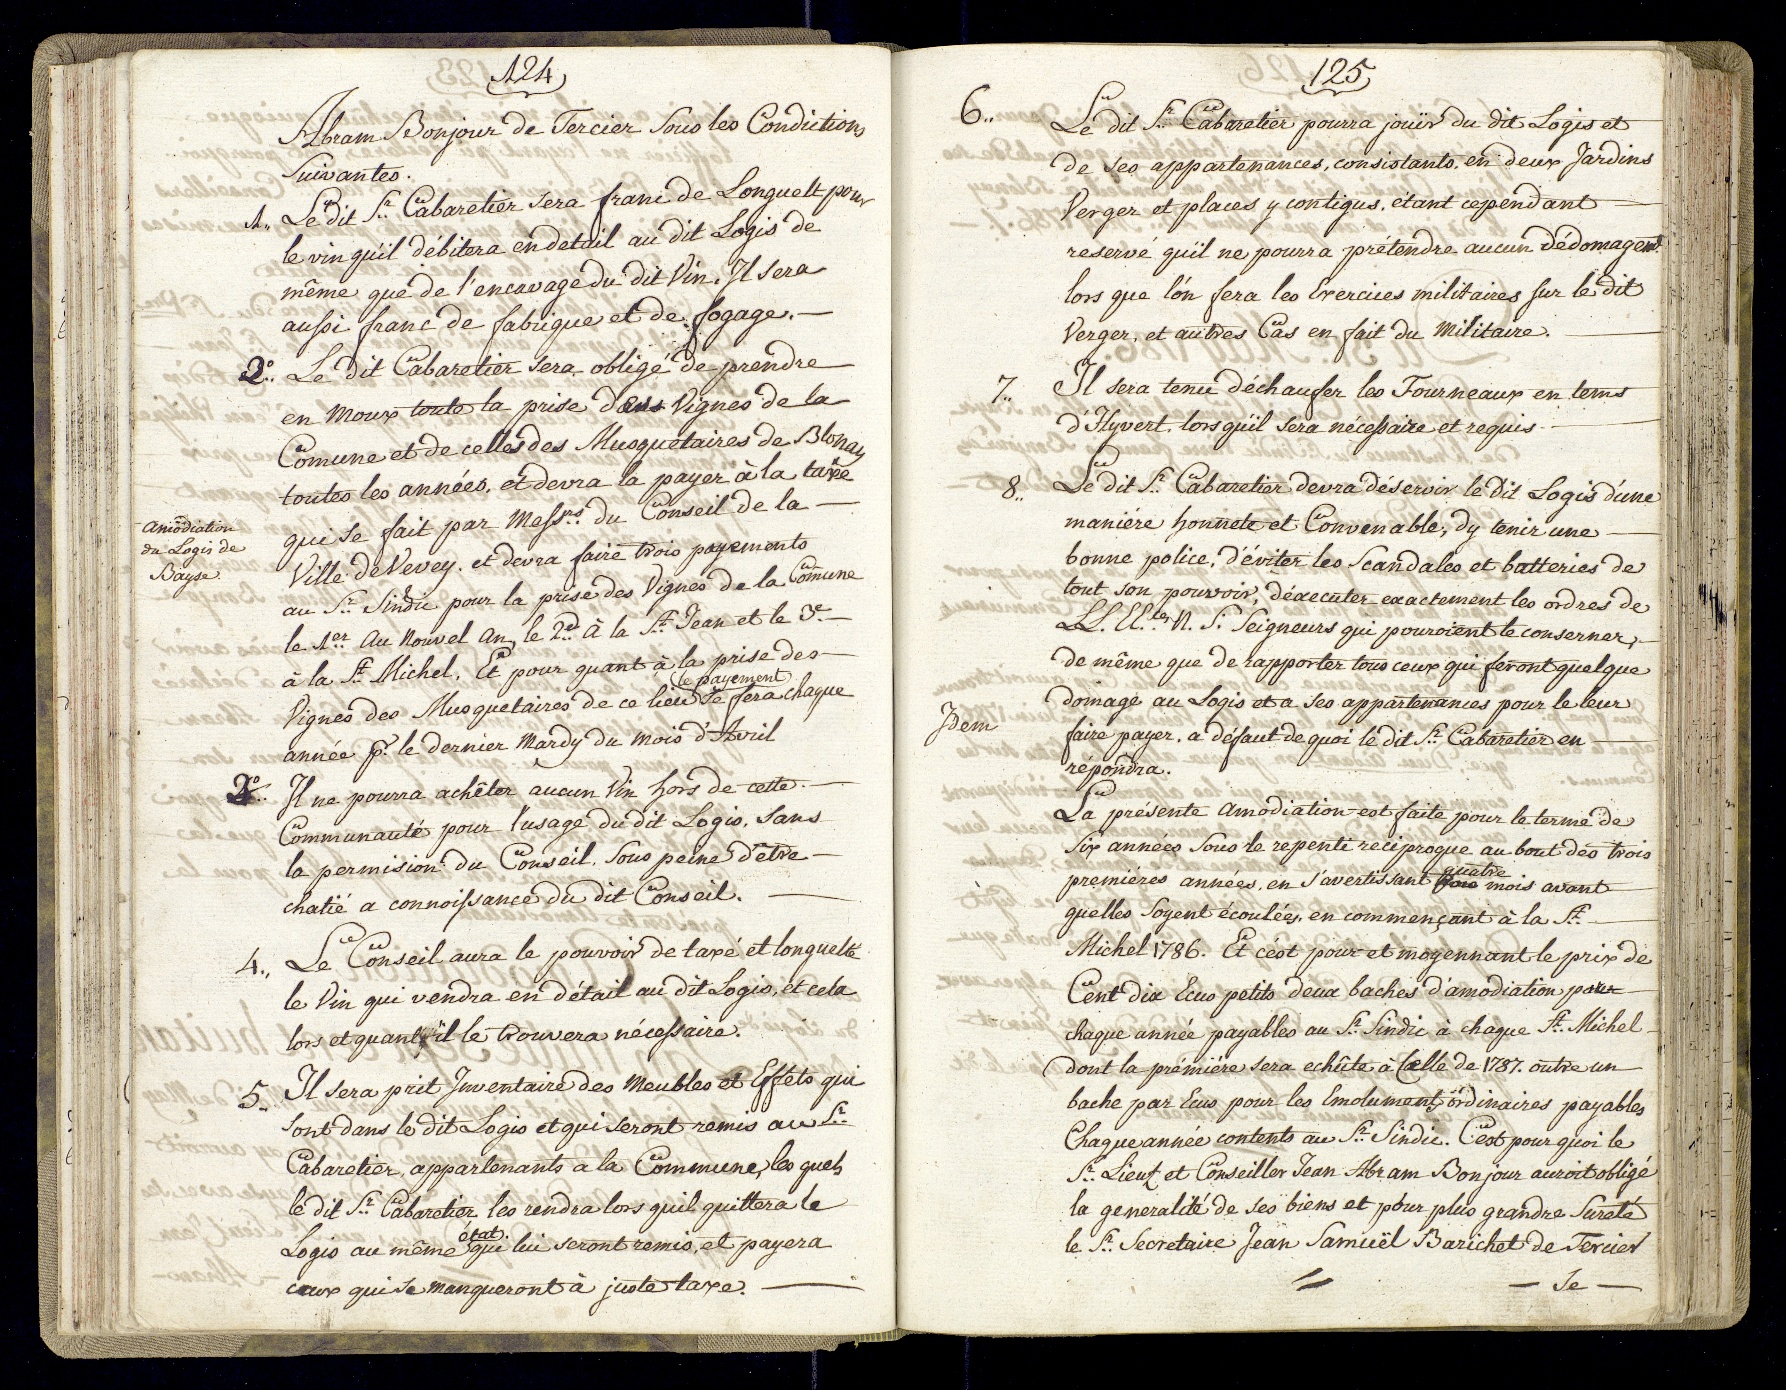 124
Abram Bonjour de Tercier Sous les Conditions
Suivantes.
1,, Le dit Sr. Cabaretier sera franc de Longuelt pour
le vin qu'il débitera en detail au dit Logis de
même que de l'encavage du dit Vin. Il sera
aussi franc de fabrique et de fogage.—
2°.. Le dit Cabaretier sera obligé de prendre
en Moux toute la prise des Vignes de la
Comune et de celles des Musquetaires de Blonay
toutes les années, et devra la payer à la taxe
qui se fait par Messrs. du Conseil de la —
amodiation
du Logis de
Bayse
Ville de Vevey. et devra faire trois payements
au Sr. Sindic pour la prise des Vignes de la Comune
le 1er. Au Nouvel An, le 2d. à la St. Jean et le 3e.—
à la St. Michel. Et pour quant à la prise des—
(le payement)
Vignes des Musquetaires de ce lieu se fera chaque
année pr. le dernier Mardy du Mois d'Avril
3°.. Il ne pourra achêter aucun Vin hors de cette.—
Communauté pour l'usage du dit Logis, Sans
la permision du Conseil. Sous peine d'être—
chatié a connoissance du dit Conseil. —
4,, Le Conseil aura le pouvoir de taxé et longuelté
le Vin qui vendra en détail au dit Logis, et cela
lors et quant, il le trouvera nécessaire.
5.. Il sera prit Inventaire des Meubles et Effets qui
Sont dans le dit Logis et qui seront remis au Sr.
Cabaretier, appartenants a la Commune, les quels
le dit Sr. Cabaretier les rendra lors quil quittera le
état.
Logis au même qui lui seront remis, et payera
ceux qui se manqueront à juste taxe. —
125
6.. Le dit Sr. Cabaretier pourra jouïr du dit Logis et —
de ses appartenances, consistants en deux Jardins
Verger et places y contigus, étant cependant —
reservé qu'il ne pourra prétendre aucun dédomagemt.
lors que l'on fera les Exercices militaires sur le dit
Verger, et autres Cas en fait du Militaire. —
7.. Il sera tenu d'échaufer les Fourneaux en tems
d'Hyvert, lorsqu'il sera nécessaire et requis —
8.. Le dit Sr. Cabaretier devra déservir le dit Logis d'une
maniére honnete et Convenable, d'y tenir une —
bonne police, d'éviter les Scandales et batteries de
tout son pouvoir, d'éxecuter exactement les ordres de
LL. EE. les N. S. Seigneurs qui pouroient le conserner,—
de même que de rapporter tous ceux qui feront quelque
domage au Logis et a ses appartenances pour le leur
Idem
faire payer, a défaut de quoi le dit Sr. Cabaretier en —
répondra.
La présente Amodiation est faite pour le terme de
Six années Sous le repenti réciproque au bout des trois
quatre
premiéres années, en s'avertissant mois avant —
quelles soyent écoulées, en commençant à la St. —
Michel 1786. Et c'est pour et moyennant le prix de
Cent dix Ecus petits deux baches d'amodiation pour —
chaque année payables au Sr. Sindic à chaque St. Michel —
dont la prémiére sera echûte à Celle de 1787. outre un
bache par Ecus pour les Emoluments ordinaires payables
Chaque année contents au Sr. Sindic. C'est pour quoi le
Sr. Lieut. et Conseiller Jean Abram Bonjour auroit obligé
la generalité de ses biens et pour plus grande Sureté
le Sr. Secretaire Jean Samuël Barichet de Tercier
— Se —